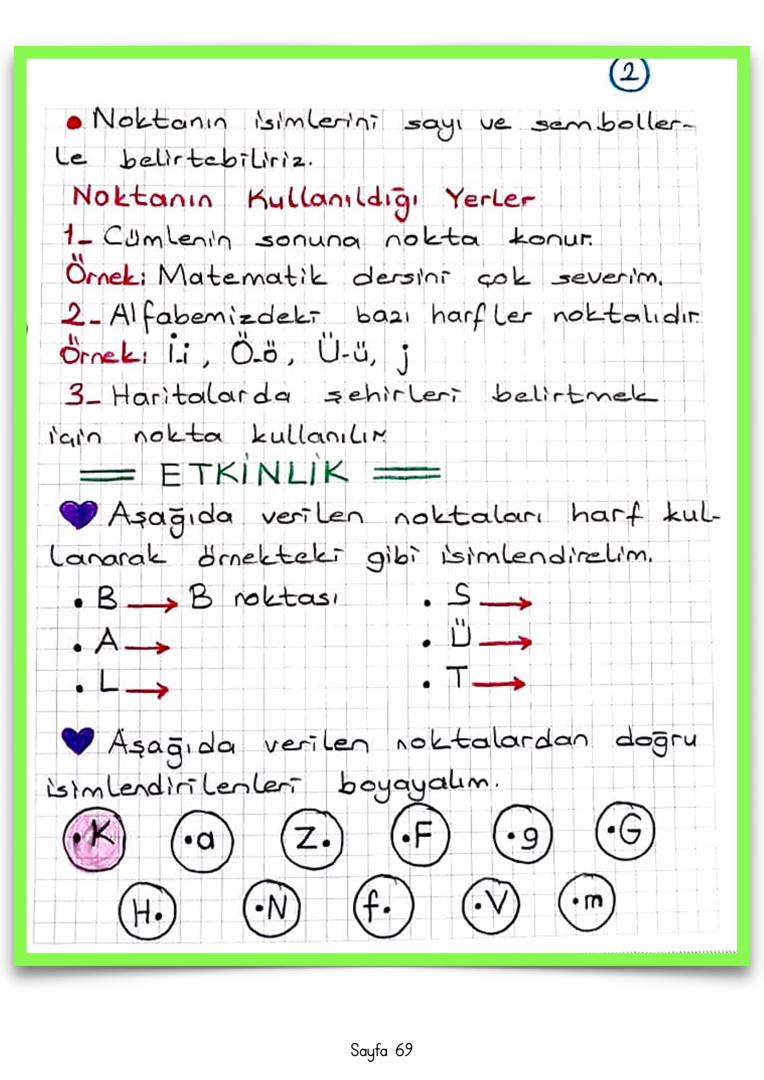 2
• Noktanın isimlerini sayı ve semboller-
le belirtebiliriz.
Noktanın Kullanıldığı Yerler
1- Cümlenin sonuna nokta konur.
Örnek: Matematik dersini çok severim.
2- Alfabemizdeki bazı harfler noktalıdır.
Örnek: İ-i, Ö-ö, Ü-ü, j
3- Haritalarda şehirleri belirtmek
için nokta kullanılır.
ETKİNLİK
Aşağıda verilen noktaları harf kul-
lanarak örnekteki gibi isimlendirelim.
• B → B noktası • S →
• A → • Ü →
• L → • T →
Aşağıda verilen noktalardan doğru
isimlendirilenleri boyayalım.
•K •a Z• •F •g •G
H• •N f• •V •m
Sayfa 69